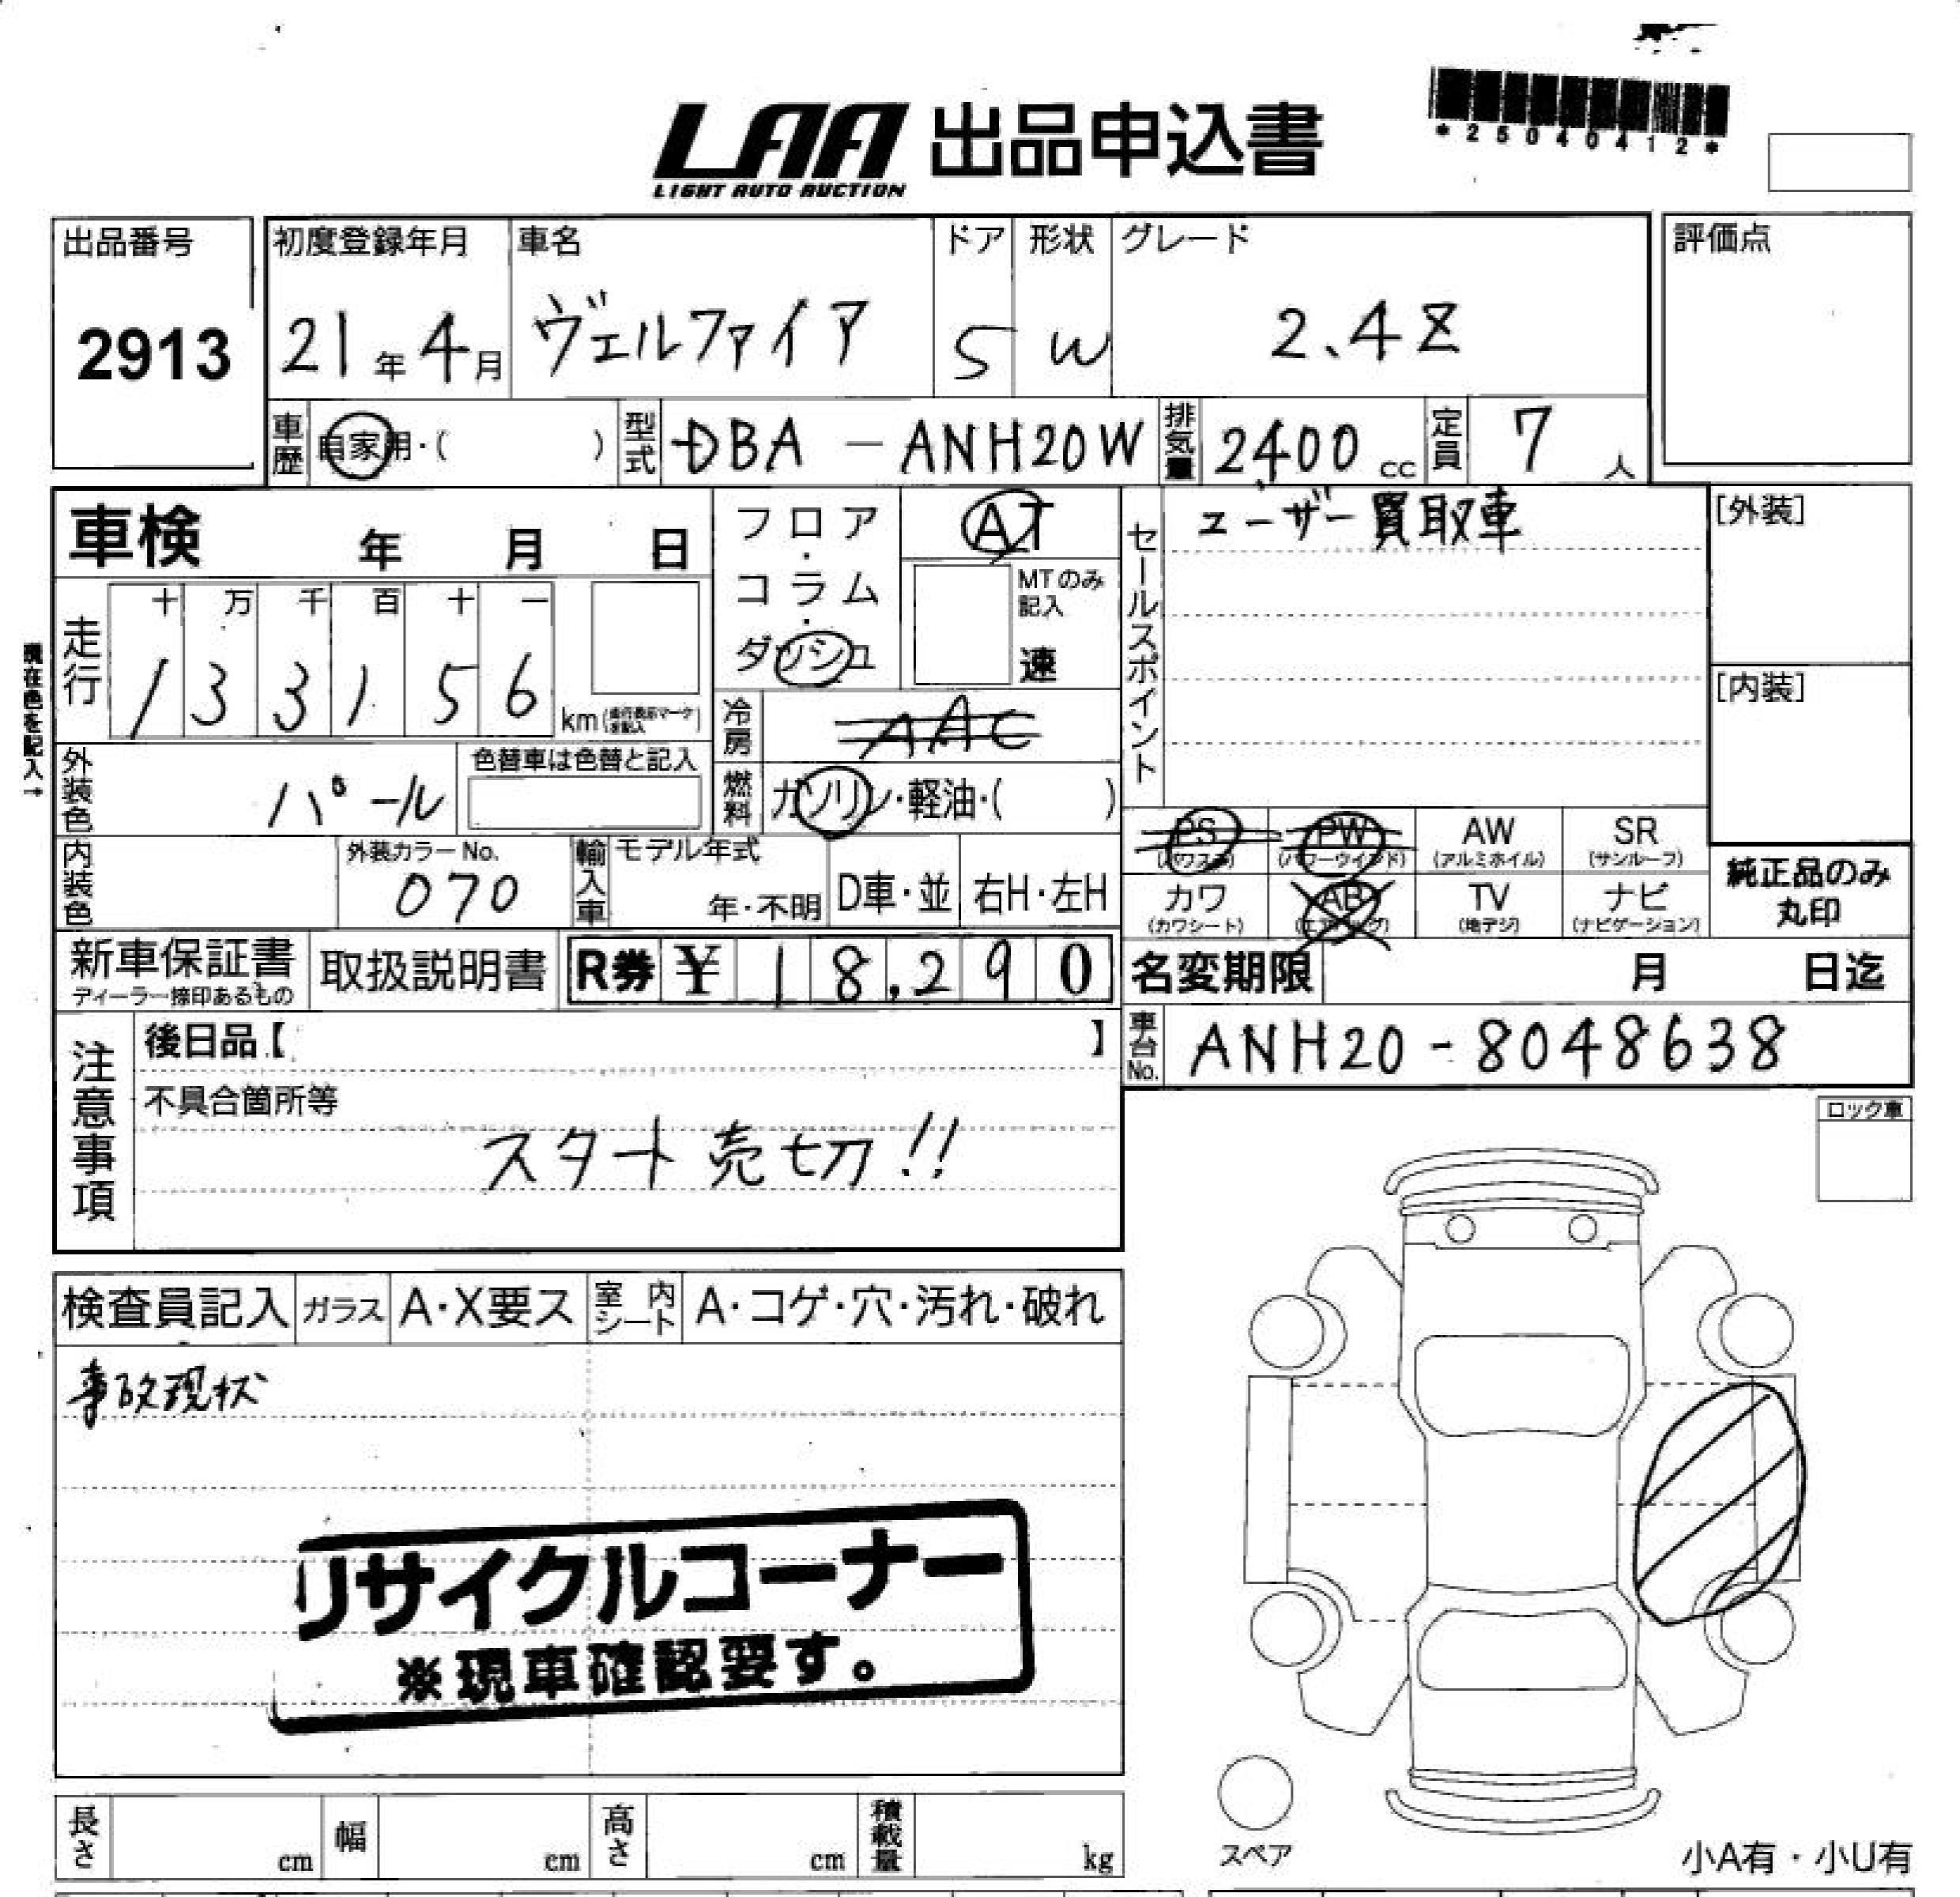 *25040412*
LAA 出品申込書
LIGHT AUTO AUCTION
出品番号 初度登録年月 車名 ドア 形状 グレード 評価点
2913 21年 4月 ヴェルファイア 5 W 2.4Z
車歴 自家用・( ) 型式 DBA-ANH20W 排気量 2400 cc 定員 7 人
車検 年 月 日 フロア・コラム・ダッシュ AT セールスポイント ユーザー買取車 [外装]
MTのみ記入 速
現在色を記入→
走行 十 万 千 百 十 一
1 3 3 1 5 6 km
[内装]
冷房 AAC
外装色 パール 色替車は色替と記入 燃料 ガソリン・軽油・( )
PS (パワステ) PW (パワーウインド) AW (アルミホイル) SR (サンルーフ)
内装色 外装カラーNo. 070 輸入車 モデル年式 年・不明 D車・並 右H・左H
カワ (カワシート) AB (エアバッグ) TV (地デジ) ナビ (ナビゲーション) 純正品のみ丸印
新車保証書 ディーラー捺印あるもの 取扱説明書 R券 ¥ 18,290 名変期限 月 日迄
注意事項 後日品【 】 車台No. ANH20-8048638
不具合箇所等
スタート売切!!
ロック車
検査員記入 ガラス A・X要ス 室内シート A・コゲ・穴・汚れ・破れ
事故現状
リサイクルコーナー
※現車確認要す。
長さ cm 幅 cm 高さ cm 積載量 kg
スペア 小A有・小U有